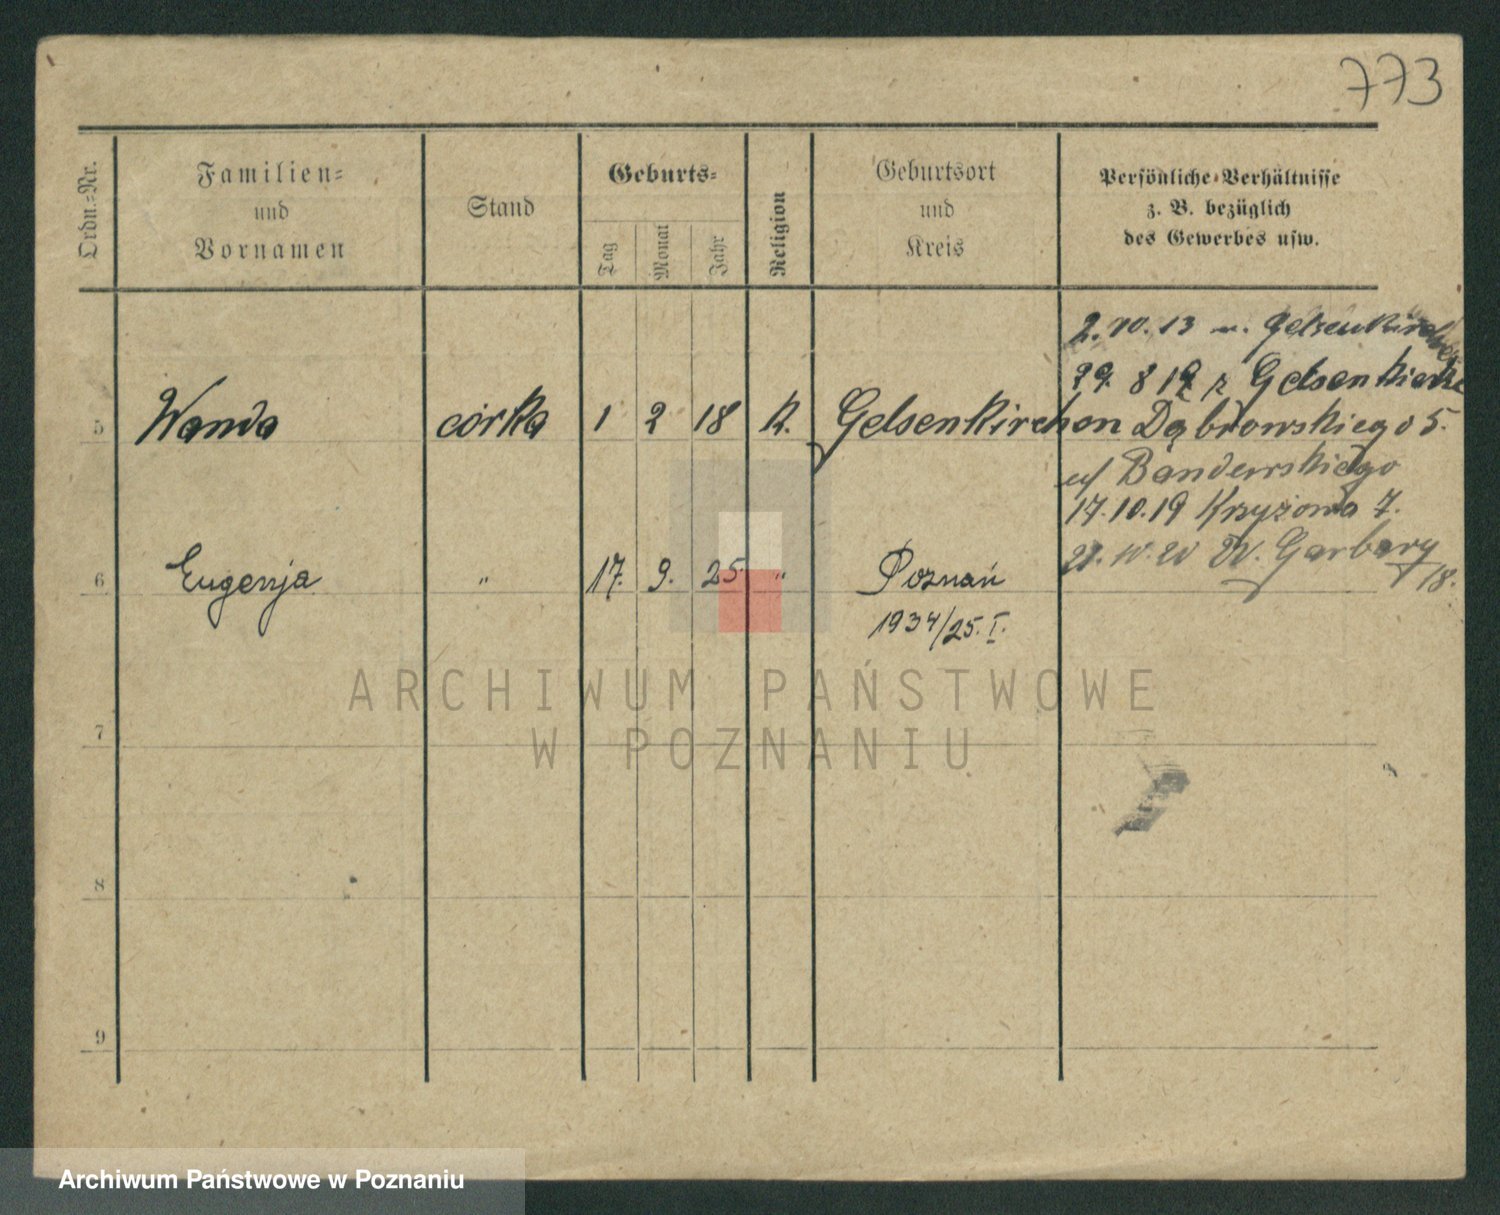 773
Ordn.-Nr.
Familien-
und
Vornamen
Stand
Geburts-
Tag
Monat
Jahr
Religion
Geburtsort
und
Kreis
Persönliche Verhältnisse
z. B. bezüglich
des Gewerbes usw.
2.10.13 n. Gelsenkirchen
29. 8 19 z Gelsenkirche
5 Wanda córka 1 2 18 K. Gelsenkirchen Dąbrowskiego 5.
17.10.19 Krzyżowa 7.
10. 20 W. Garbary
18.
6 Eugenja " 17. 9. 25. " Poznań
1934/25. I.
7
8
9
ARCHIWUM PAŃSTWOWE
W POZNANIU
Archiwum Państwowe w Poznaniu